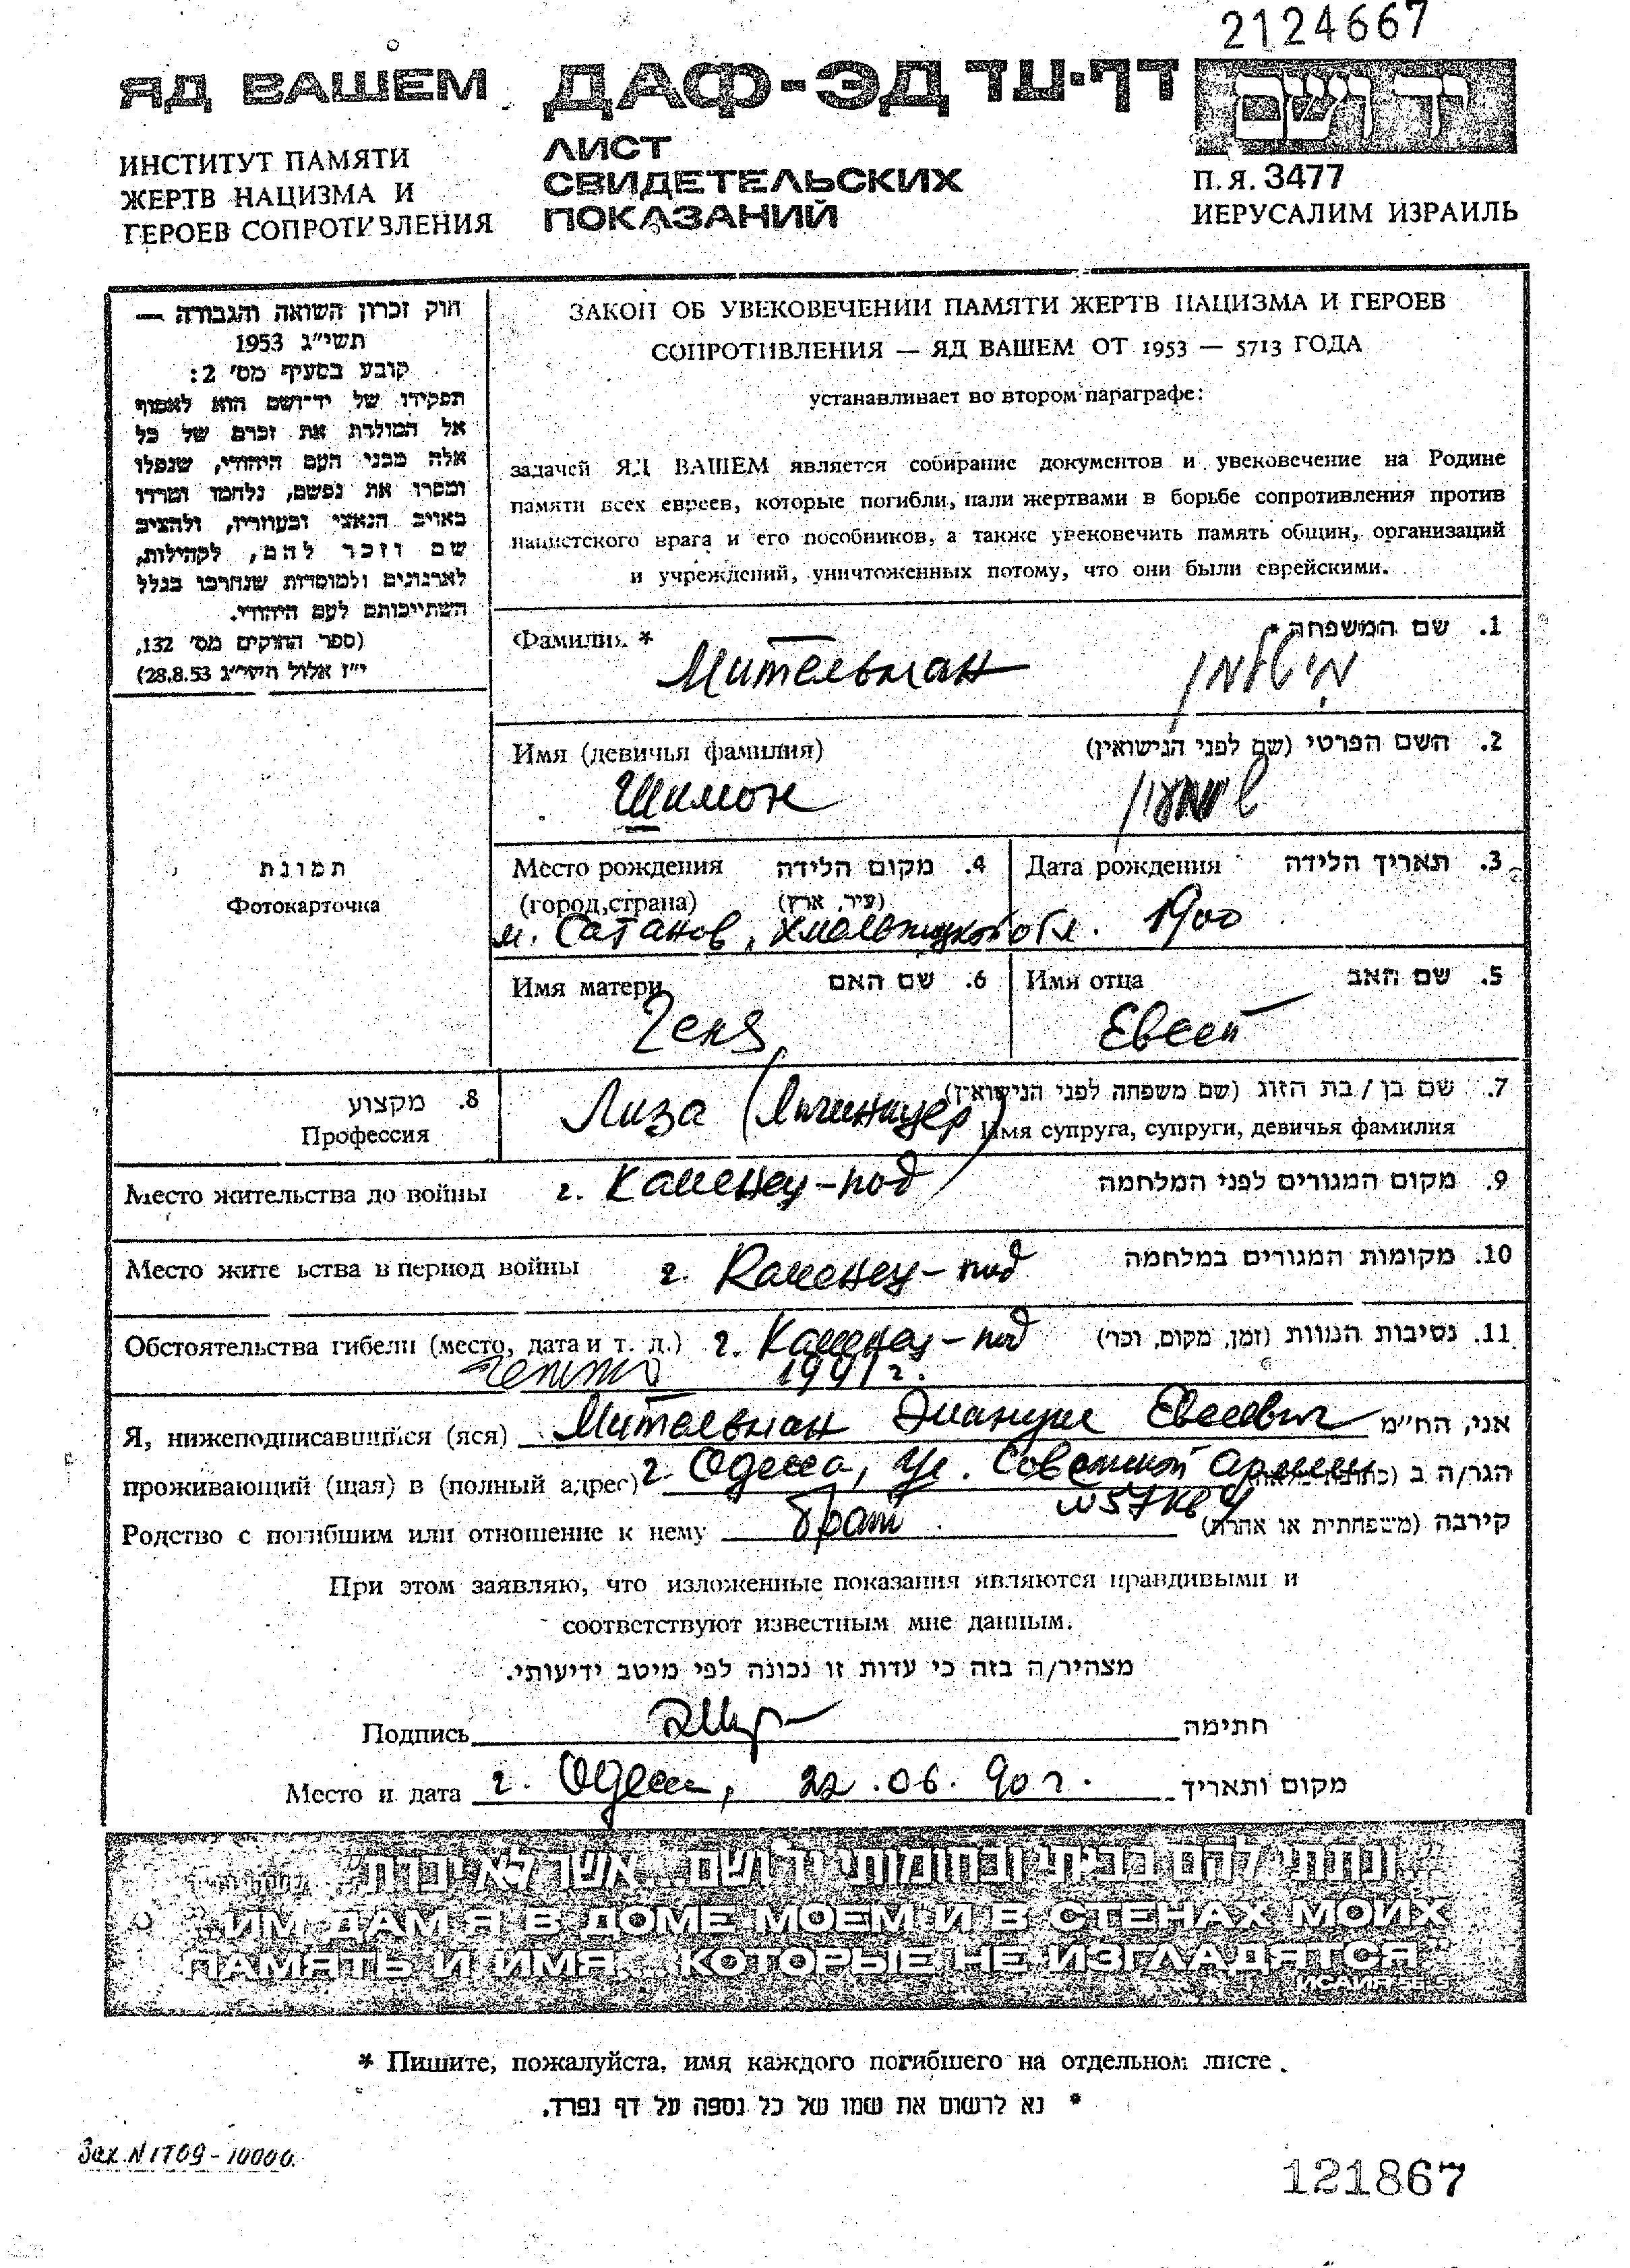 2124667
ЯД ВАШЕМ ДАФ-ЭД דף-עד יד ושם
ИНСТИТУТ ПАМЯТИ
ЖЕРТВ НАЦИЗМА И
ГЕРОЕВ СОПРОТИВЛЕНИЯ
ЛИСТ
СВИДЕТЕЛЬСКИХ
ПОКАЗАНИЙ
П.Я. 3477
ИЕРУСАЛИМ ИЗРАИЛЬ
חוק זכרון השואה והגבורה —
תשי״ג 1953
קובע בסעיף מס׳ 2:
תפקידו של יד־ושם הוא לאסוף
אל המולדת את זכרם של כל
אלה מבני העם היהודי, שנפלו
ומסרו את נפשם, נלחמו ומרדו
באויב הנאצי ובעוזריו, ולהציב
שם וזכר להם, לקהילות,
לארגונים ולמוסדות שנחרבו בגלל
השתייכותם לעם היהודי.
(ספר החוקים מס׳ 132,
י״ז אלול תשי״ג 28.8.53)
ЗАКОН ОБ УВЕКОВЕЧЕНИИ ПАМЯТИ ЖЕРТВ НАЦИЗМА И ГЕРОЕВ
СОПРОТИВЛЕНИЯ — ЯД ВАШЕМ ОТ 1953 — 5713 ГОДА
устанавливает во втором параграфе:
задачей ЯД ВАШЕМ является собирание документов и увековечение на Родине
памяти всех евреев, которые погибли, пали жертвами в борьбе сопротивления против
нацистского врага и его пособников, а также увековечить память общин, организаций
и учреждений, уничтоженных потому, что они были еврейскими.
Фамилия * 1. שם המשפחה *
Мительман מיטלמן
Имя (девичья фамилия) 2. השם הפרטי (שם לפני הנישואין)
Шимон שמעון
Место рождения 4. מקום הלידה Дата рождения 3. תאריך הלידה
(город,страна) (עיר, ארץ)
м. Сатанов, Хмельницкой обл. 1900
Имя матери 6. שם האם Имя отца 5. שם האב
Геня Евсей
תמונת
Фотокарточка
8. מקצוע
Профессия
7. שם בן / בת הזוג (שם משפחה לפני הנישואין)
Лиза
Имя супруга, супруги, девичья фамилия
Место жительства до войны г. Каменец-под 9. מקום המגורים לפני המלחמה
Место жите ьства в период войны г. Каменец-под 10. מקומות המגורים במלחמה
Обстоятельства гибели (место, дата и т. д.) г. Каменец-под 11. נסיבות המוות (זמן, מקום, וכו׳)
гетто 1941 г.
Я, нижеподписавшийся (яся) Мительман Эмануил Евсеевич אני, הח״מ
проживающий (щая) в (полный адрес) г. Одесса, ул. Советской Армии הגר/ה ב
N57 кв 4
Родство с погибшим или отношение к нему брат קירבה (משפחתית או אחרת)
При этом заявляю, что изложенные показания являются правдивыми и
соответствуют известным мне данным.
מצהיר/ה בזה כי עדות זו נכונה לפי מיטב ידיעותי.
Подпись חתימה
Место и дата г. Одесса, 22.06.90 г. מקום ותאריך
„ונתתי להם בביתי ובחומותי יד ושם... אשר לא יכרת”
„ИМ ДАМ Я В ДОМЕ МОЕМ И В СТЕНАХ МОИХ
ПАМЯТЬ И ИМЯ... КОТОРЫЕ НЕ ИЗГЛАДЯТСЯ.”
ИСАИЯ 56.5
* Пишите, пожалуйста, имя каждого погибшего на отдельном листе.
* נא לרשום את שמו של כל נספה על דף נפרד.
Зак. N 1709-10000.
121867